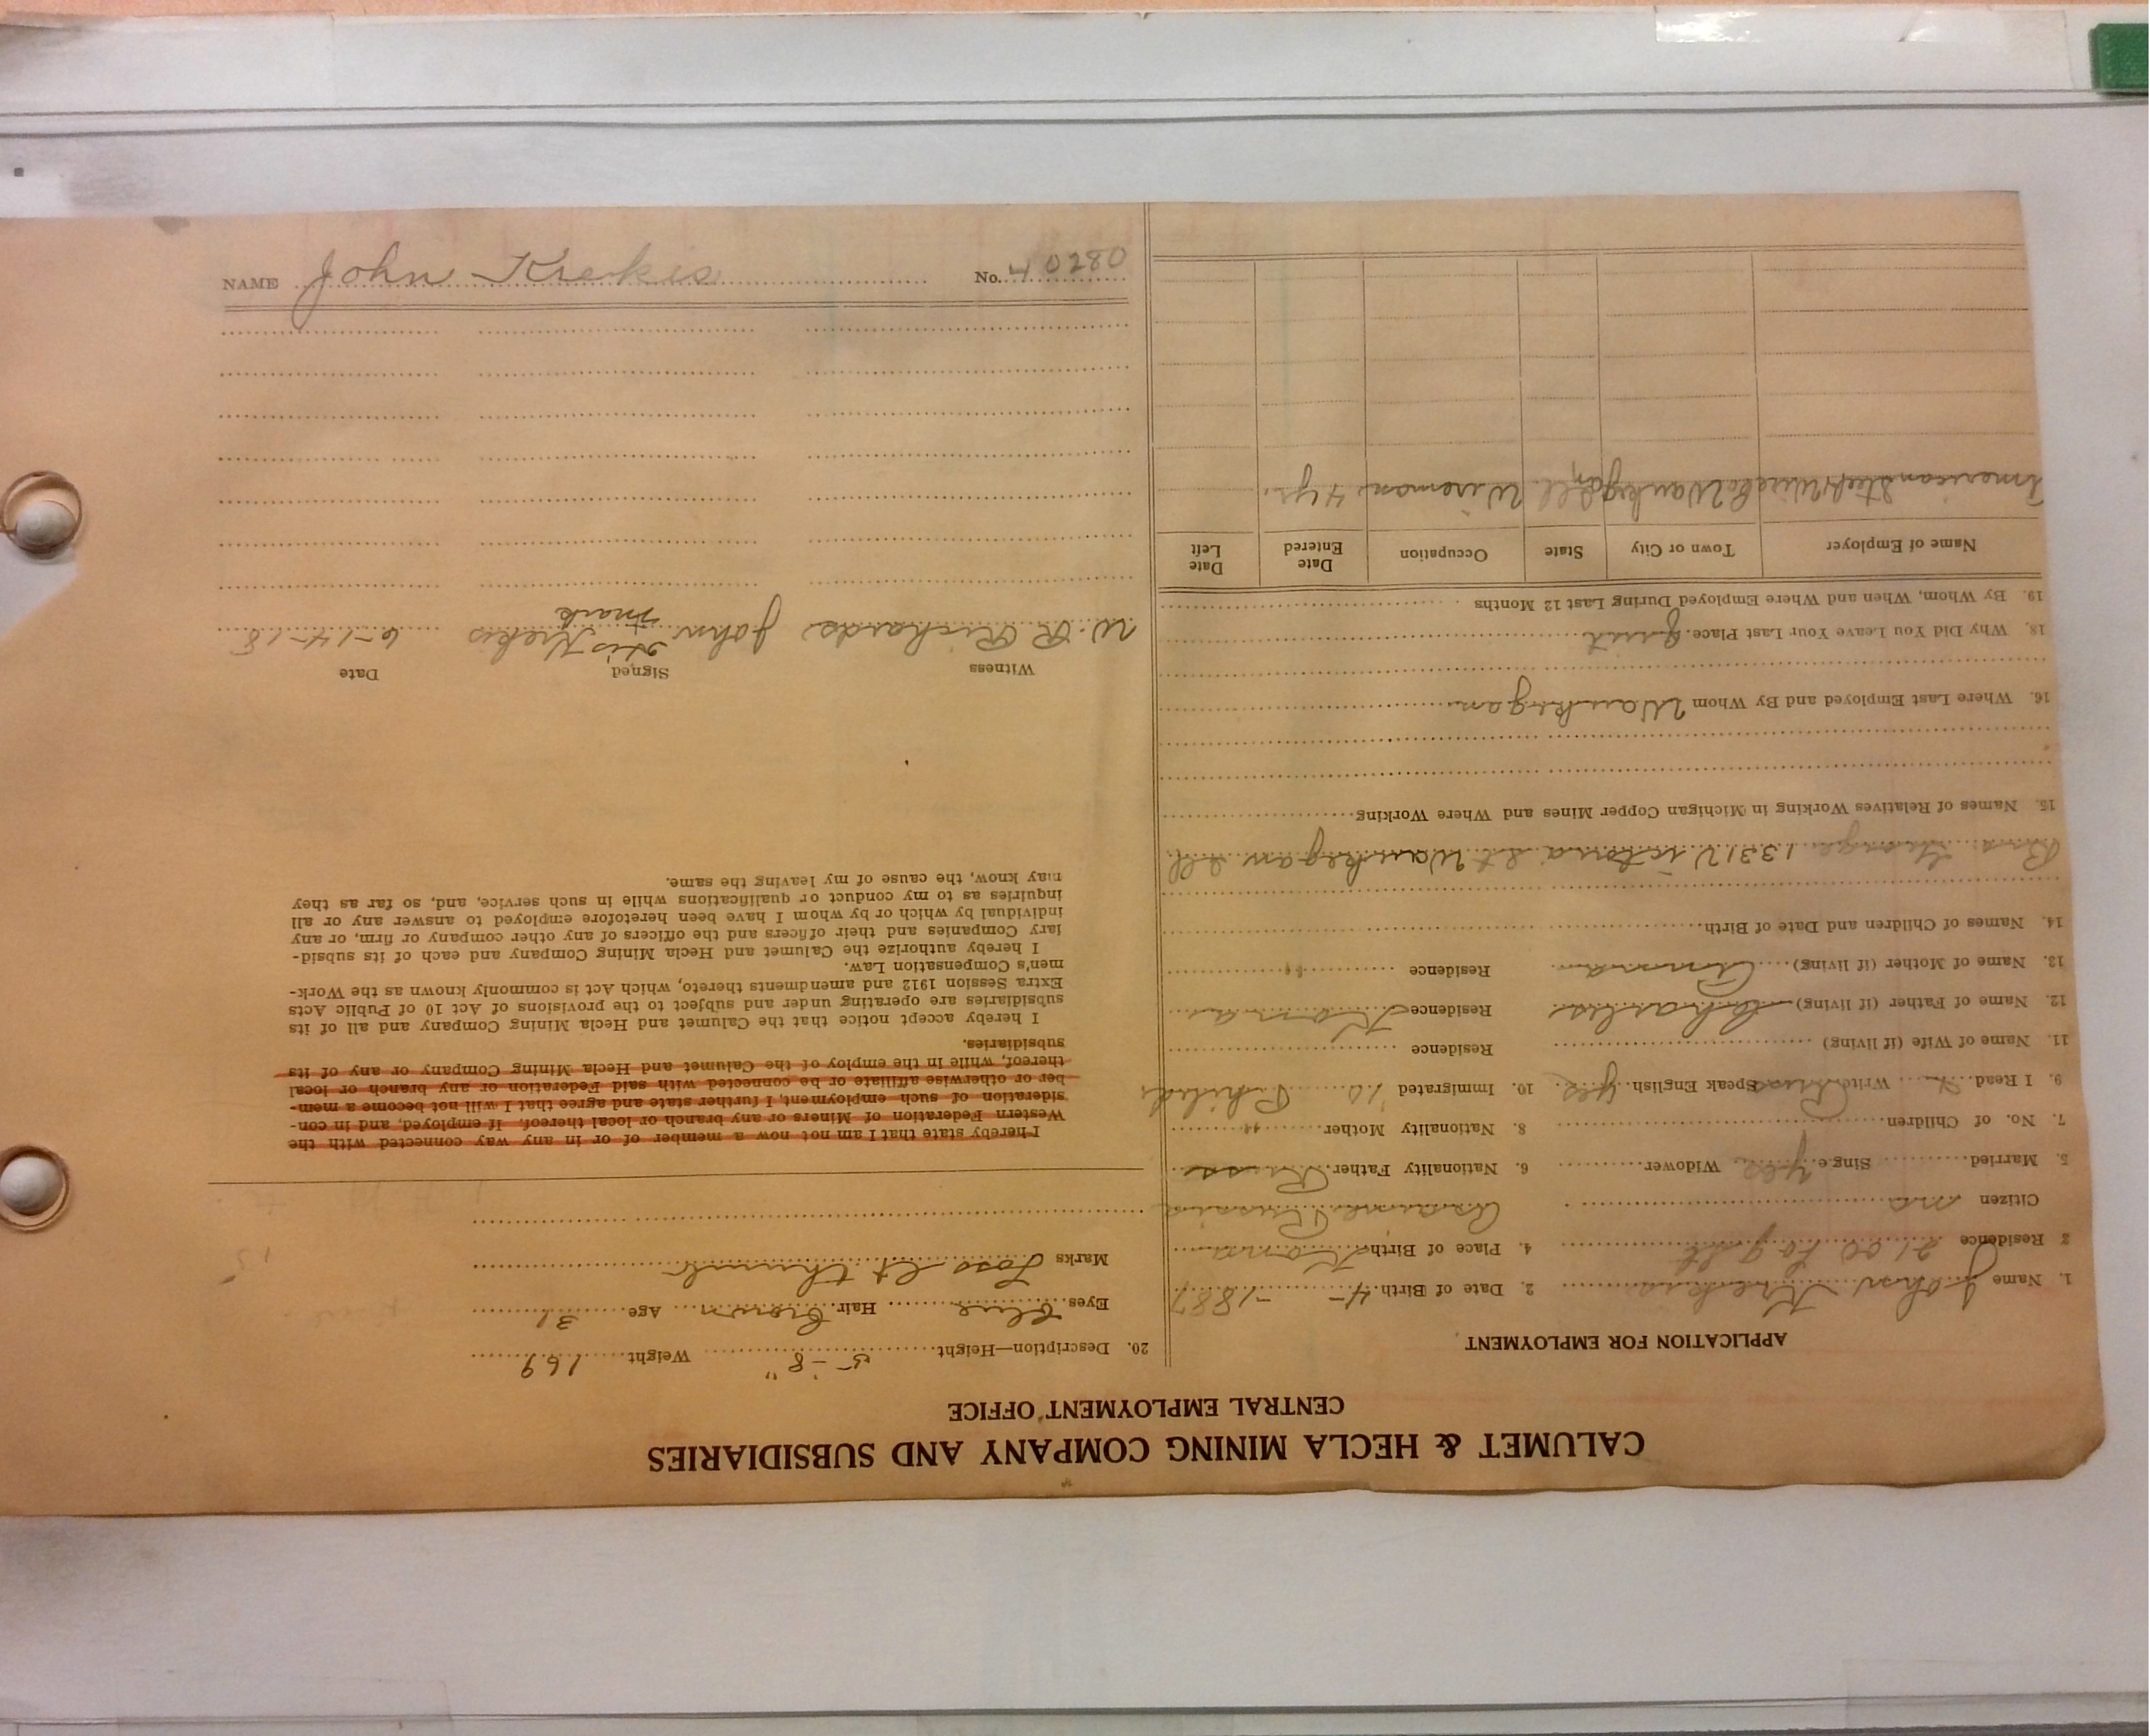 CALUMET & HECLA MINING COMPANY AND SUBSIDIARIES
CENTRAL EMPLOYMENT OFFICE
APPLICATION FOR EMPLOYMENT
1. Name John Krekis 2. Date of Birth 4- -1887
3 Residence 2100 Log St 4. Place of Birth
Citizen no Russia
5. Married Single yes Widower 6. Nationality Father Russ
7. No. of Children 8. Nationality Mother "
9. I Read Write Russ Speak English yes 10. Immigrated '10
11. Name of Wife (if living) Residence
12. Name of Father (if living) Charles Residence
13. Name of Mother (if living) Residence "
14. Names of Children and Date of Birth
Bro. George 1331 Victoria St Waukegan Ill
15. Names of Relatives Working in Michigan Copper Mines and Where Working
16. Where Last Employed and By Whom Waukegan
18. Why Did You Leave Your Last Place. quit
19. By Whom, When and Where Employed During Last 12 Months
Name of Employer Town or City State Occupation Date Entered Date Left
American Steel & Wire Co Waukegan Ill. Wireman 4 yrs.
20. Description—Height 5-8" Weight 169
Eyes blue Hair brown Age 31
Marks Loss lt thumb
I hereby state that I am not now a member of or in any way connected with the
Western Federation of Miners or any branch or local thereof. If employed, and in con-
sideration of such employment, I further state and agree that I will not become a mem-
ber or otherwise affiliate or be connected with said Federation or any branch or local
thereof, while in the employ of the Calumet and Hecla Mining Company or any of its
subsidiaries.
I hereby accept notice that the Calumet and Hecla Mining Company and all of its
subsidiaries are operating under and subject to the provisions of Act 10 of Public Acts
Extra Session 1912 and amendments thereto, which Act is commonly known as the Work-
men's Compensation Law.
I hereby authorize the Calumet and Hecla Mining Company and each of its subsid-
iary Companies and their officers and the officers of any other company or firm, or any
individual by which or by whom I have been heretofore employed to answer any or all
inquiries as to my conduct or qualifications while in such service, and, so far as they
may know, the cause of my leaving the same.
Witness Signed Date
W. R. Richards John His Krekis 6-14-18
mark
NAME John Krekis No. 40280